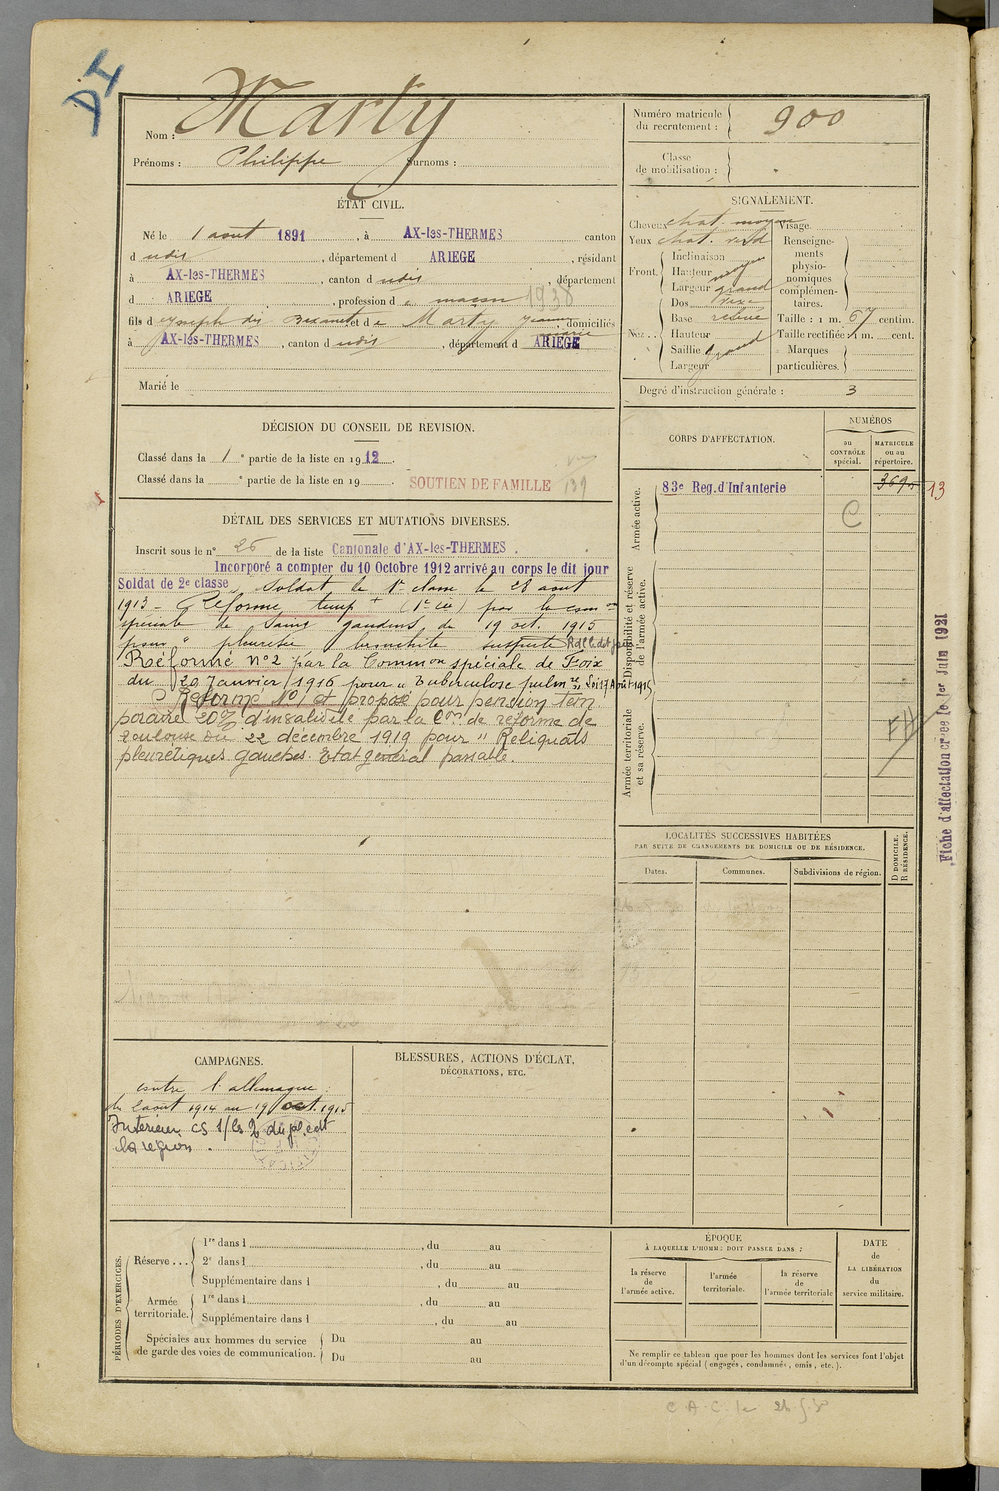 Nom : Marty
Prénoms : Philippe Surnoms :
Numéro matricule
du recrutement : 900
Classe
de mobilisation :
ÉTAT CIVIL.
Né le 1 août 1891, à AX-les-THERMES canton
d udis, département d ARIEGE, résidant
à AX-les-THERMES, canton d udis, département
d ARIEGE, profession d e maçon 1938
fils d e Joseph dis et d e Marty Jeanne, domiciliés
marie
à AX-les-THERMES, canton d udis, département d ARIEGE
Marié le
SIGNALEMENT.
Cheveux chat. moyen
Yeux chat. verd
Front. Inclinaison
Hauteur moyen
Largeur grand
Nez .. Dos
Base relevé
Hauteur
Saillie grand
Largeur
Visage.
Renseigne-
ments
physio-
nomiques
complémen-
taires.
Taille : 1 m. 67 centim.
Taille rectifiée : 1 m. cent.
Marques
particulières.
Degré d'instruction générale : 3
DÉCISION DU CONSEIL DE REVISION.
Classé dans la 1e partie de la liste en 1912.
Classé dans la e partie de la liste en 19 . SOUTIEN DE FAMILLE 139
DÉTAIL DES SERVICES ET MUTATIONS DIVERSES.
Inscrit sous le n° 26 de la liste Cantonale d'AX-les-THERMES.
Incorporé a compter du 10 Octobre 1912 arrivé au corps le dit jour
Soldat de 2e classe, Soldat de 1e classe le 28 août
1913 - Réformé temp (1e) par la comon
spéciale de Saint gaudens, du 19 oct. 1915
pour " pleurésie bronchite suspecte
Réformé N°2 par la Common spéciale de Foix
du 20 Janvier 1916 pour " Tuberculose pulmre " Loi 17 Août 1915
Réformé N° 1 et proposé pour pension tem
poraire 20% d'invalidité par la Con de réforme de
Toulouse du 22 décembre 1919 pour " Reliquats
pleurétiques gauches. Etat général passable.
CORPS D'AFFECTATION.
NUMÉROS
au
CONTRÔLE
spécial.
MATRICULE
ou au
répertoire.
Armée active.
83e Reg. d'Infanterie 13
C
Disponibilité et réserve
de l'armée active.
Armée territoriale
et sa réserve.
Fiche d'affectation créée le 1er Juin 1921
LOCALITÉS SUCCESSIVES HABITÉES
PAR SUITE DE CHANGEMENTS DE DOMICILE OU DE RÉSIDENCE.
Dates.
Communes.
Subdivisions de région.
D DOMICILE.
R RÉSIDENCE.
CAMPAGNES.
contre l'allemagne :
du 2 août 1914 au 19 oct. 1915
Intérieur
la région.
BLESSURES, ACTIONS D'ÉCLAT,
DÉCORATIONS, ETC.
PÉRIODES D'EXERCICES.
Réserve ...
1re dans l , du au
2e dans l , du au
Supplémentaire dans l , du au
Armée
territoriale.
1re dans l , du au
Supplémentaire dans l , du au
Spéciales aux hommes du service
de garde des voies de communication.
Du au
Du au
ÉPOQUE
À LAQUELLE L'HOMME DOIT PASSER DANS :
la réserve
de
l'armée active.
l'armée
territoriale.
la réserve
de
l'armée territoriale
DATE
de
LA LIBÉRATION
du
service militaire.
Ne remplir ce tableau que pour les hommes dont les services font l'objet
d'un décompte spécial (engagés, condamnés, omis, etc.).